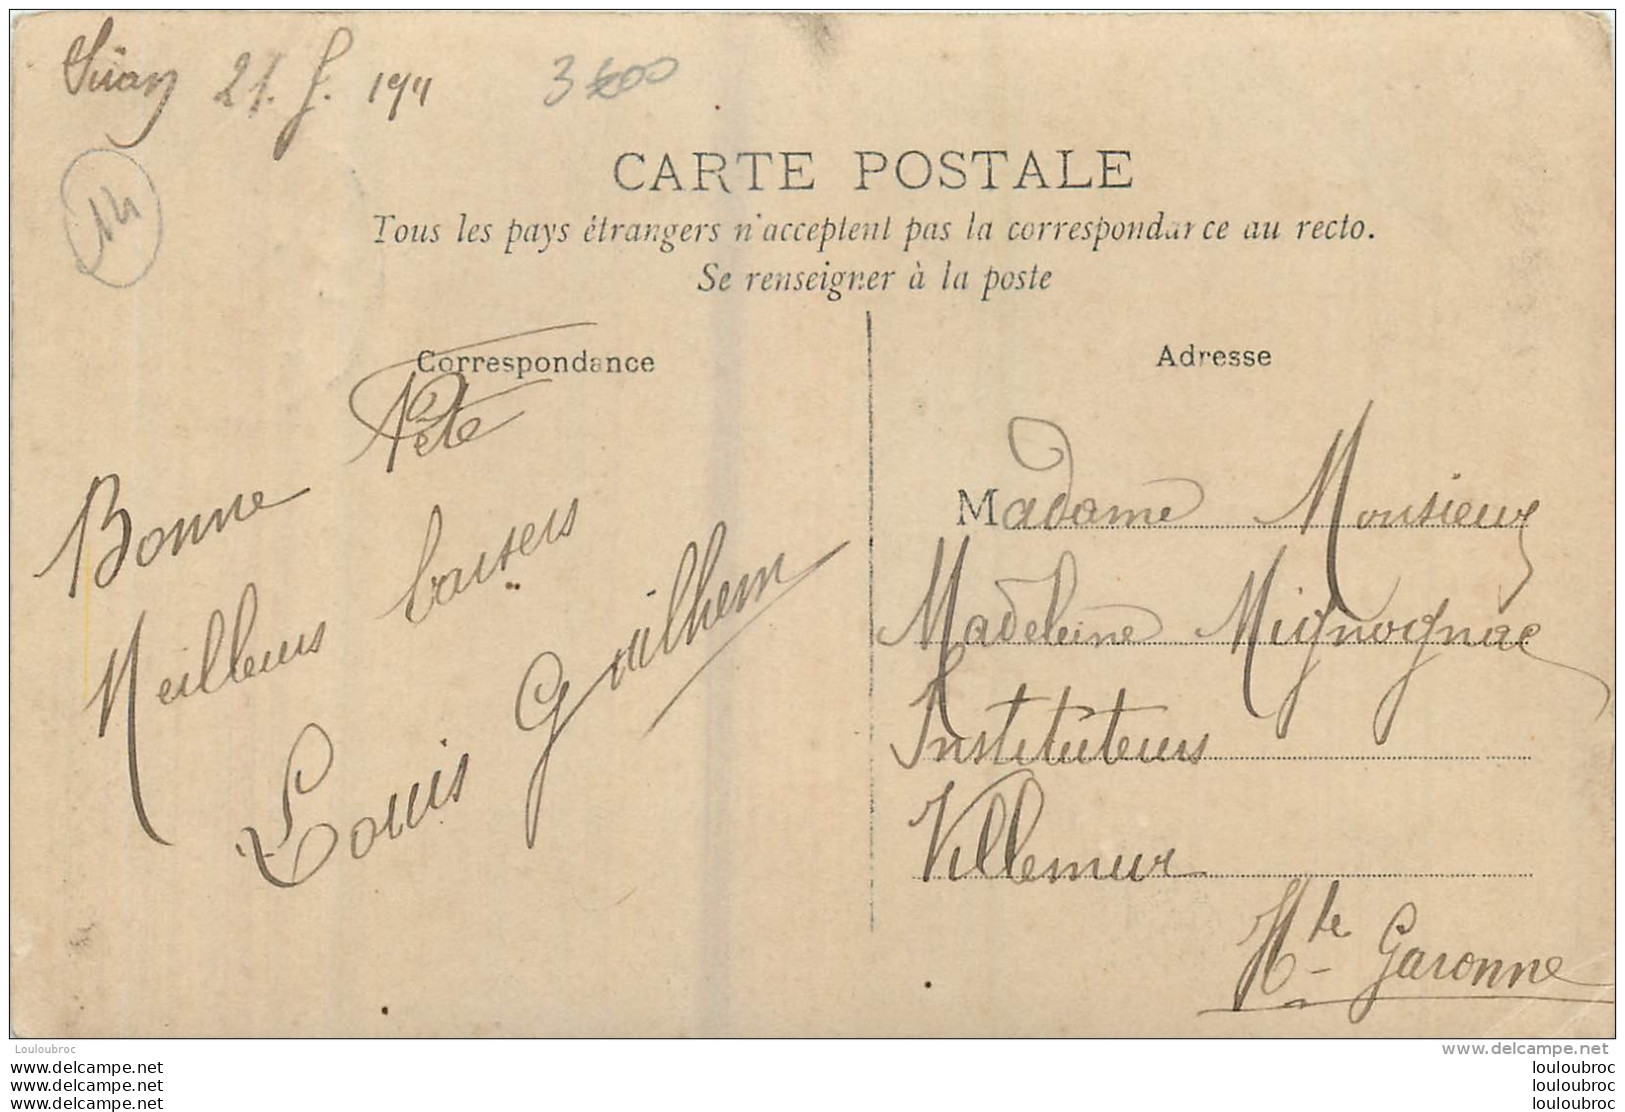 21. J. 1911
3500
14
CARTE POSTALE
Tous les pays étrangers n'acceptent pas la correspondance au recto.
Se renseigner à la poste
Correspondance
Bonne Fête
Meilleurs baisers
Louis Guilhem
Adresse
Madame Monsieur
Madeleine Mignognac
Instituteurs
Villemur
Hte Garonne
Louloubroc
www.delcampe.net
louloubroc louloubroc
louloubroc louloubroc
louloubroc louloubroc